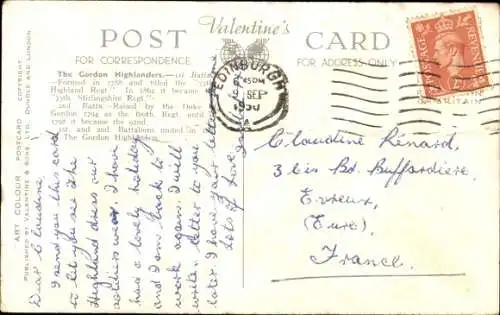 Valentine's
POST CARD
FOR CORRESPONDENCE
FOR ADDRESS ONLY
ART COLOUR POSTCARD COPYRIGHT
PUBLISHED BY VALENTINE & SONS, LTD., DUNDEE AND LONDON
The Gordon Highlanders.—1st Battn.
—Formed in 1758 and titled the "75th
Highland Regt." In 1862 it became
"75th Stirlingshire Regt."
2nd Battn.—Raised by the Duke
of Gordon 1794 as the 100th Regt. until
1798 it became the 92nd.
1st and 2nd Battalions united in
The Gordon Highlanders.
EDINBURGH
45 PM
SEP
1950
POSTAGE REVENUE
BRITAIN
Dear Claudine
I send you this card
to let you see the
Highland dress our
soldiers wear. I have
had a lovely holiday
and I am back to
work again. I will
write a letter to you
later. I have your letter here
Lots of love
Claudine Renard,
3 bis Bd. Buffardière,
Evreux,
(Eure),
France.